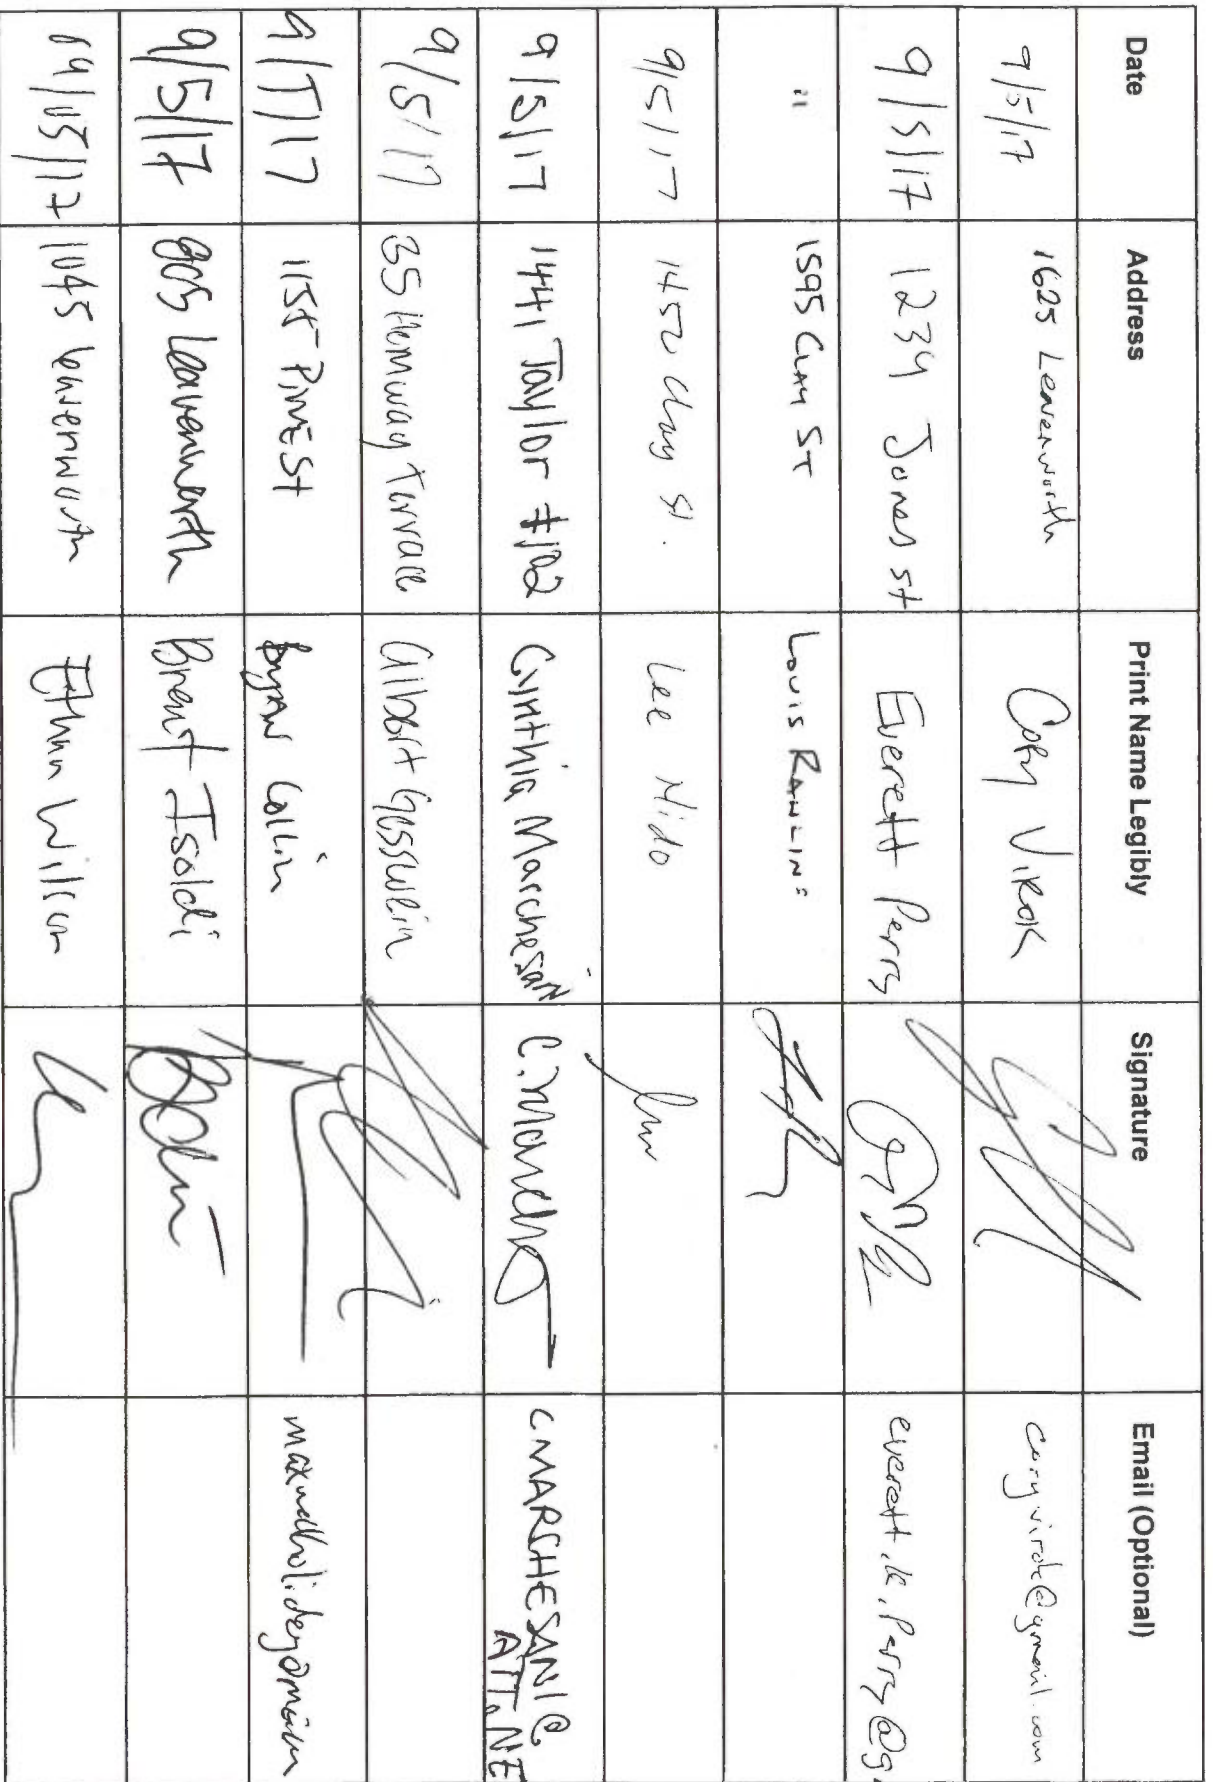 Date Address Print Name Legibly Signature Email (Optional)
9/5/17 1625 Leavenworth Cory Virok coryvirok@gmail.com
9/5/17 1234 Jones st Everett Perry everett.k.Perry@g
" 1595 CLAY ST LOUIS RAWLINS
9/5/17 1452 Clay St. Lee Nido
9/5/17 1441 Taylor #102 Cynthia Marchesani C. March CMARCHESANI@
ATT.NE
9/5/17 35 Hemway Terrace Gilbert Gosswein
9/5/17 1155 PINE St Collin
9/5/17 905 Leavenworth Brent Isoldi
09/05/17 1045 Leavenworth Ethan